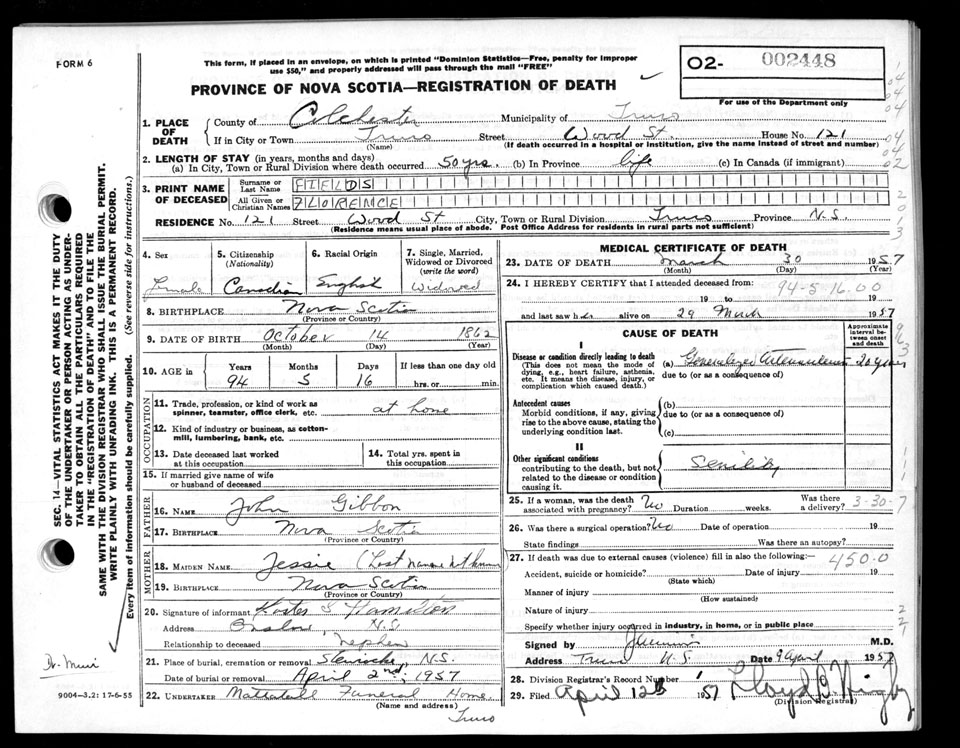 FORM 6
This form, if placed in an envelope, on which is printed "Dominion Statistics—Free, penalty for improper
use $50," and properly addressed will pass through the mail "FREE"
PROVINCE OF NOVA SCOTIA—REGISTRATION OF DEATH
O2- 002448
For use of the Department only
1. PLACE OF DEATH
County of Colchester Municipality of Truro
If in City or Town Truro Street Wood St. House No. 121
(Name) (If death occurred in a hospital or institution, give the name instead of street and number)
2. LENGTH OF STAY (in years, months and days)
(a) In City, Town or Rural Division where death occurred 50 yrs. (b) In Province life (c) In Canada (if immigrant)
3. PRINT NAME OF DECEASED
Surname or Last Name FIELDS
All Given or Christian Names FLORENCE
RESIDENCE No. 121 Street Wood St City, Town or Rural Division Truro Province N.S.
(Residence means usual place of abode. Post Office Address for residents in rural parts not sufficient)
4. Sex Female
5. Citizenship (Nationality) Canadian
6. Racial Origin English
7. Single, Married, Widowed or Divorced (write the word) Widowed
8. BIRTHPLACE Nova Scotia
(Province or Country)
9. DATE OF BIRTH October 14 1862
(Month) (Day) (Year)
10. AGE in Years Months Days If less than one day
94 5 16 hrs. or min.
OCCUPATION
11. Trade, profession, or kind of work as
spinner, teamster, office clerk, etc. at home
12. Kind of industry or business, as cotton-
mill, lumbering, bank, etc.
13. Date deceased last worked
at this occupation
14. Total yrs. spent in
this occupation
15. If married give name of wife
or husband of deceased
FATHER
16. NAME John Gibbon
17. BIRTHPLACE Nova Scotia
(Province or Country)
MOTHER
18. MAIDEN NAME Jessie (Last name not known
19. BIRTHPLACE Nova Scotia
(Province or Country)
20. Signature of informant S Hamilton
Address Onslow, N.S.
Relationship to deceased nephew
21. Place of burial, cremation or removal N.S.
Date of burial or removal April 2nd, 1957
22. UNDERTAKER Mattatall Funeral Home
(Name and address)
Truro
MEDICAL CERTIFICATE OF DEATH
23. DATE OF DEATH March 30 1957
(Month) (Day) (Year)
24. I HEREBY CERTIFY that I attended deceased from:
94-5-16.00
19 to 19
and last saw her alive on 29 March 1957
CAUSE OF DEATH
Approximate interval between onset and death
I
Disease or condition directly leading to death
(This does not mean the mode of
dying, e.g., heart failure, asthenia,
etc. It means the disease, injury, or
complication which caused death.)
(a) Generalized 20 years
due to (or as a consequence of)
Antecedent causes
Morbid conditions, if any, giving
rise to the above cause, stating the
underlying condition last.
(b)
due to (or as a consequence of)
(c)
II
Other significant conditions
contributing to the death, but not
related to the disease or condition
causing it.
Senility
25. If a woman, was the death
associated with pregnancy? No Duration weeks. Was there
a delivery? 3-30-7
26. Was there a surgical operation? No Date of operation 19
State findings Was there an autopsy?
27. If death was due to external causes (violence) fill in also the following:— 450.0
Accident, suicide or homicide? Date of injury 19
(State which)
Manner of injury
(How sustained)
Nature of injury
Specify whether injury occurred in industry, in home, or in public place
Signed by M.D.
Address Truro N.S. Date 9 April 1957
28. Division Registrar's Record Number
29. Filed April 12th 1957 Floyd
(Division Registrar)
SEC. 14—VITAL STATISTICS ACT MAKES IT THE DUTY
OF THE UNDERTAKER OR PERSON ACTING AS UNDER-
TAKER TO OBTAIN ALL THE PARTICULARS REQUIRED
IN THE "REGISTRATION OF DEATH" AND TO FILE THE
SAME WITH THE DIVISION REGISTRAR WHO SHALL ISSUE THE BURIAL PERMIT.
WRITE PLAINLY WITH UNFADING INK. THIS IS A PERMANENT RECORD.
Every item of information should be carefully supplied. (See reverse side for instructions.)
Dr. Muir
9004-3.2: 17-6-55